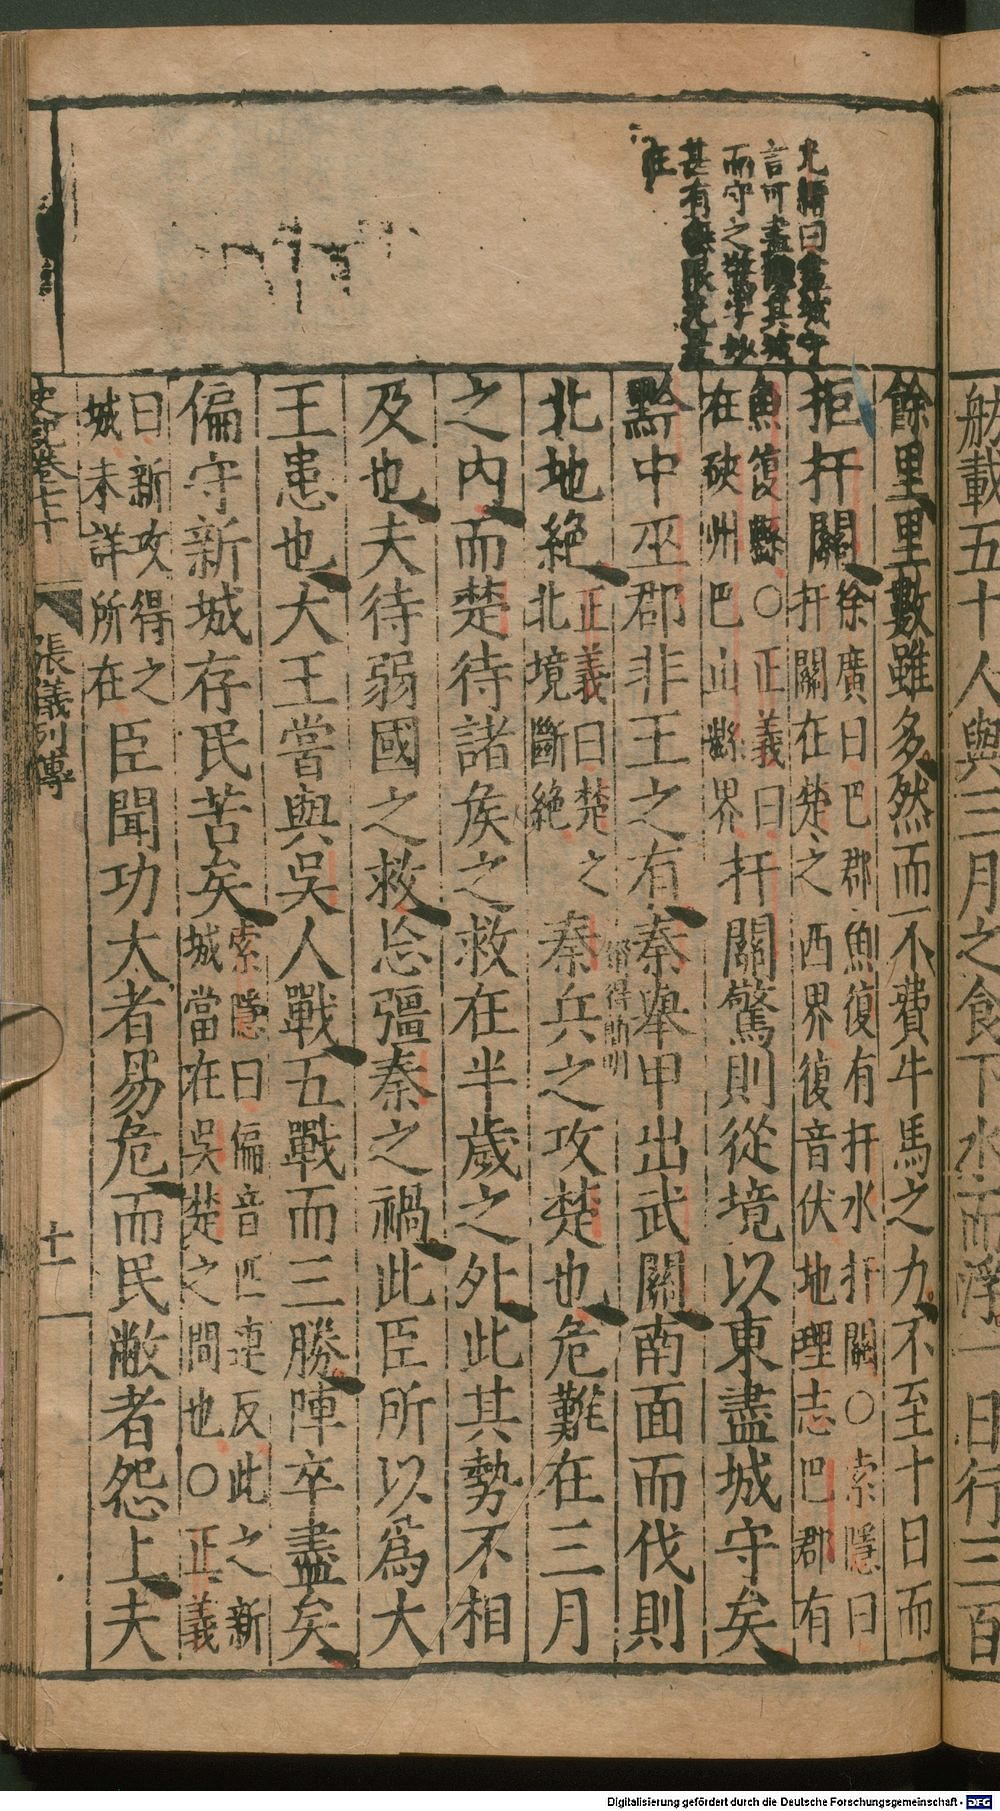 舫載五十人與三月之食下水而浮一日行三百
餘里里數雖多然而不費牛馬之力不至十日而
拒扞關徐廣曰巴郡魚復有扞水扞關○索隱曰
扞關在楚之西界復音伏地理志巴郡有
魚復縣○正義曰
在硤州巴山縣界扞關驚則從境以東盡城守矣
黔中巫郡非王之有秦舉甲出武關南面而伐則
北地絶正義曰楚之
北境斷絶秦兵之攻楚也危難在三月
之內而楚待諸侯之救在半歲之外此其勢不相
及也夫待弱國之救忘彊秦之禍此臣所以爲大
王患也大王嘗與吳人戰五戰而三勝陣卒盡矣
偏守新城存民苦矣索隱曰偏音匹連反此之新
城當在吳楚之間也○正義
曰新攻得之
城未詳所在臣聞功大者易危而民敝者怨上夫
曰盡城守
言可盡其城
而守之驚字妙
甚有無限光景
在
史記卷七十
張儀列傳
十一
Digitalisierung gefördert durch die Deutsche Forschungsgemeinschaft - DFG